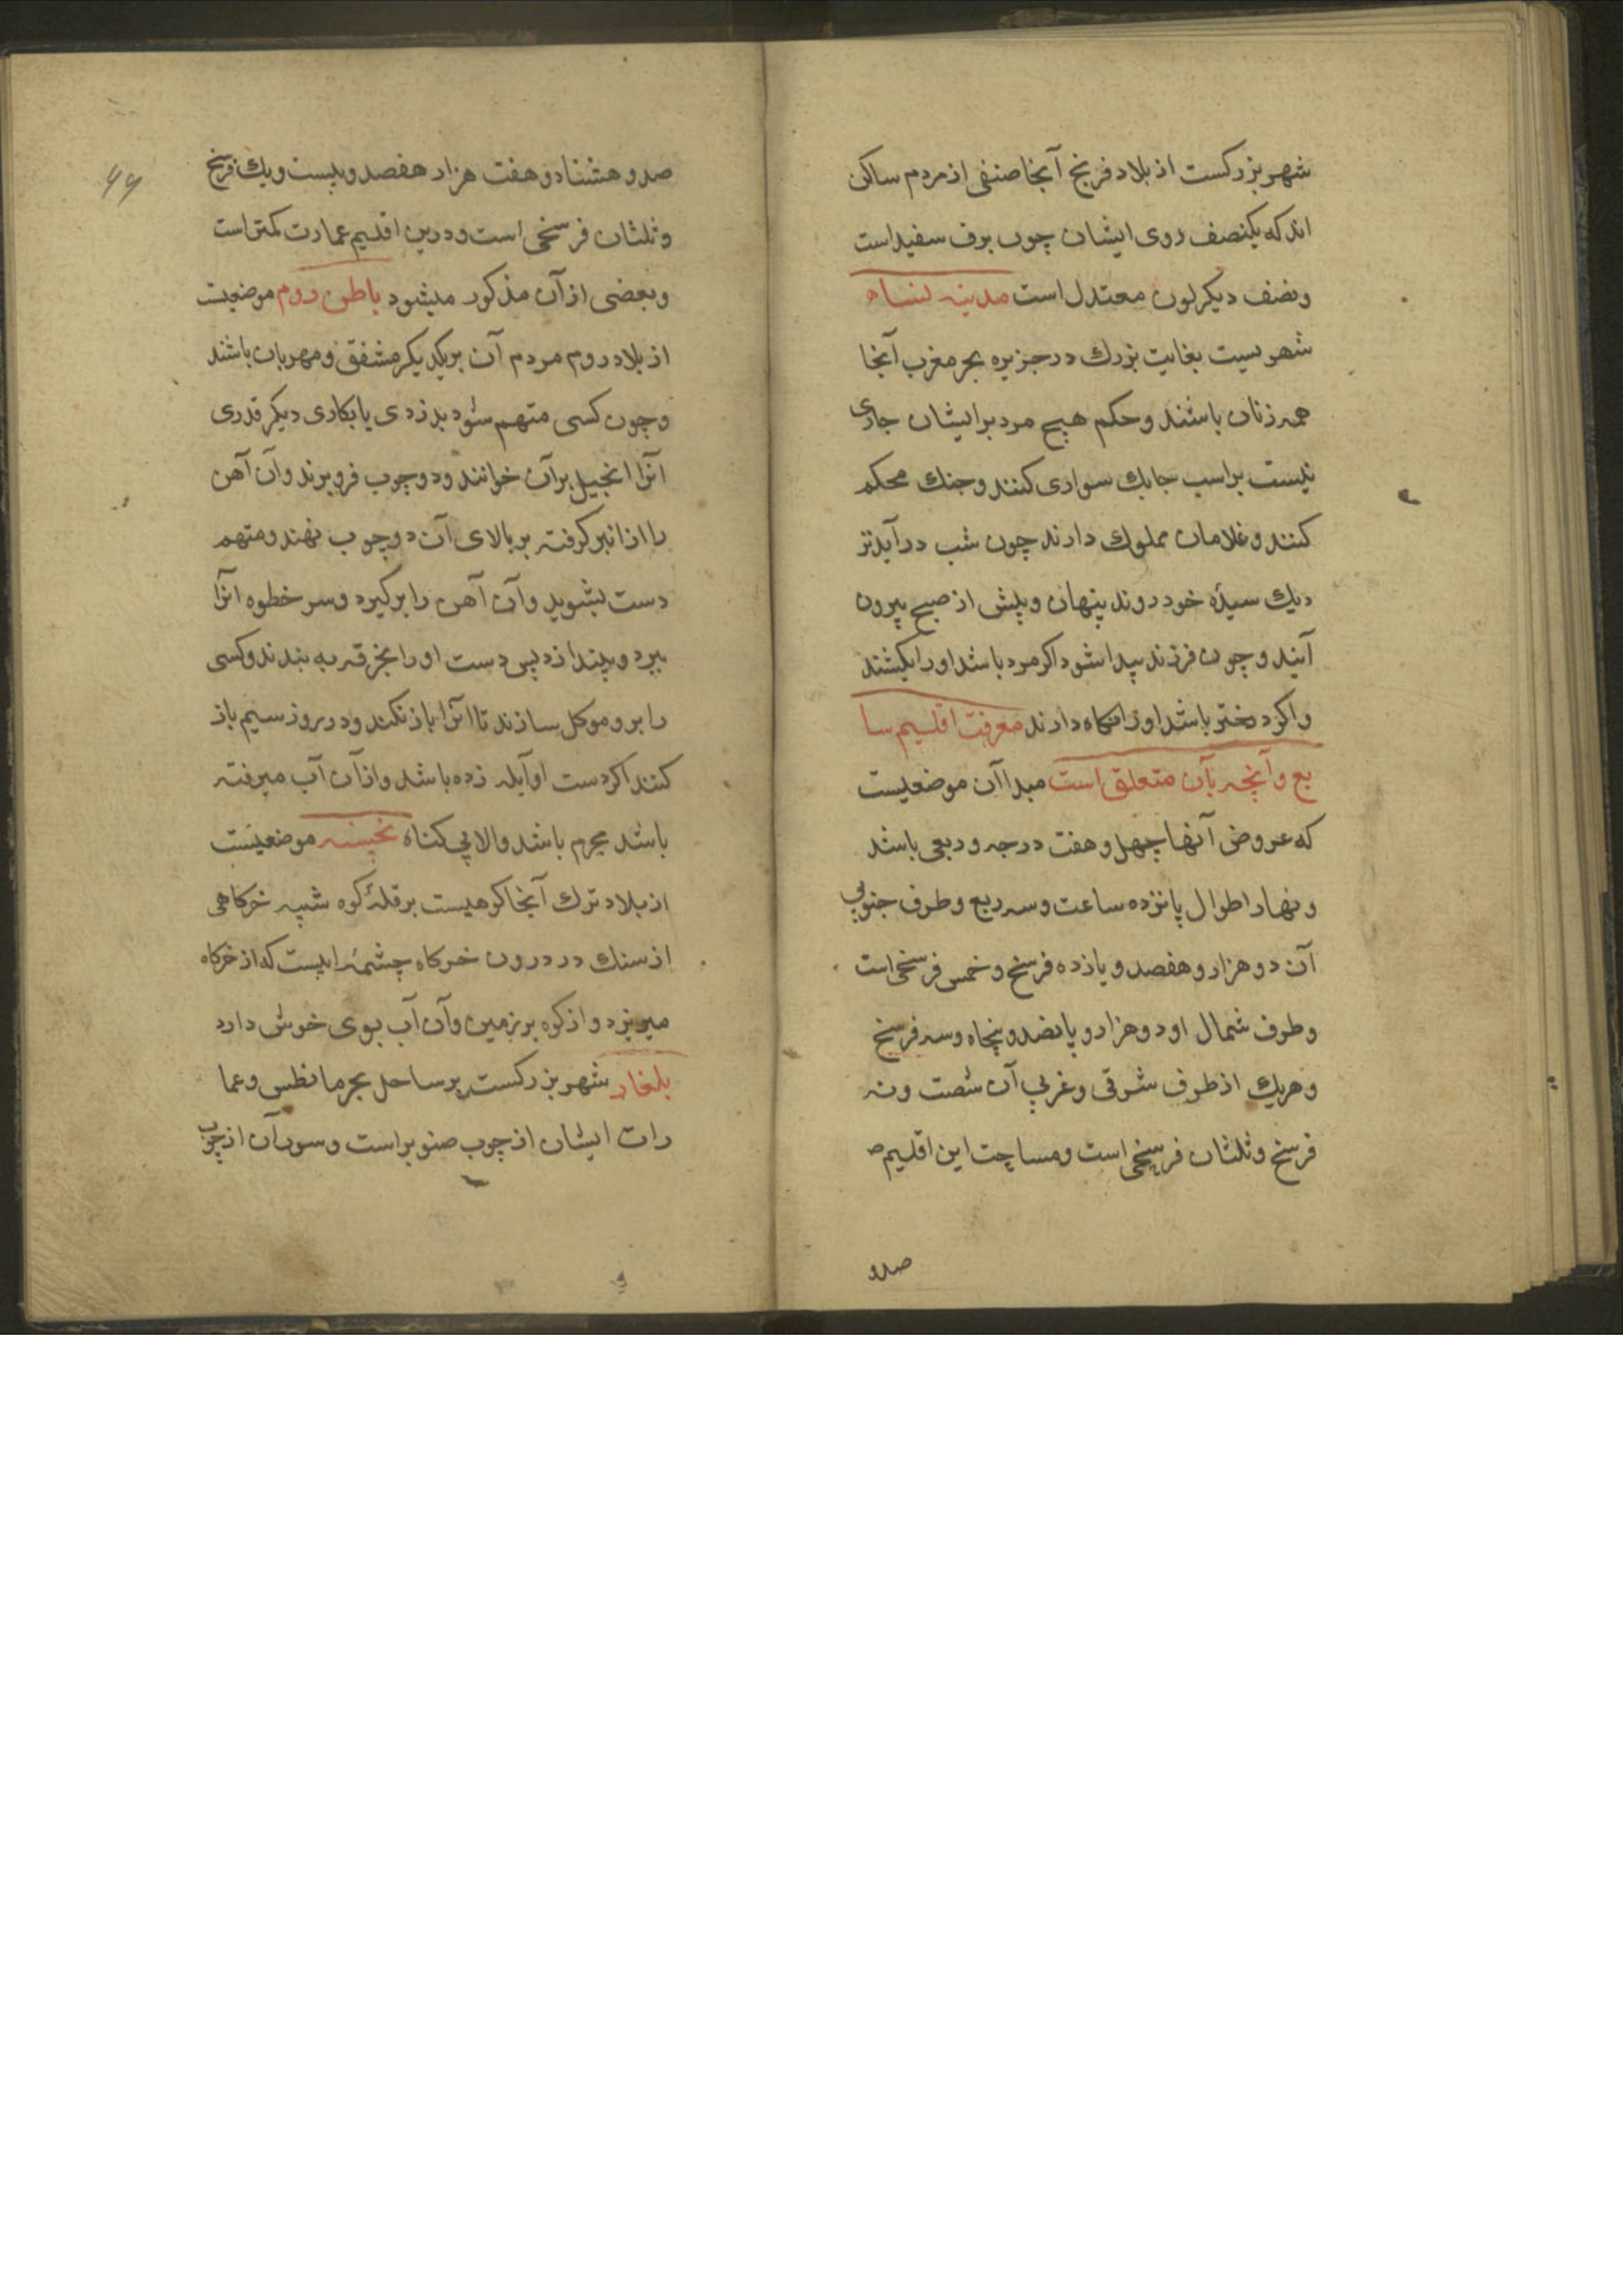 شهر بزرکست از بلاد فرنج آنجا صنفی از مردم ساکن
اند که یکنصف روی ایشان چون برف سفید است
ونصف دیکر لون معتدل است مدینه لنساء
شهریست بغایت بزرك در جزیره بحر مغرب آنجا
همه زنان باشند و حکم هیچ مرد بر ایشان جاری
نیست بر اسب جابك سواری کنند و جنك محکم
کنند و غلامان مملوك دارند چون شب در آید نز
دیك سیدۀ خود روند پنهان و پیش از صبح بیرون
آیند و چون فرزند پیدا شود اکر مرد باشد او را بکشند
و اکر دختر باشد او را نکاه دارند معرفت اقلیم سا
بع و آنچه بآن متعلق است مبدا آن موضعیست
که عروض آنها چهل و هفت درجه و ربعی باشد
و نهار اطوال پانزده ساعت و سه ربع و طرف جنوبی
آن دو هزار و هفصد و یازده فرسخ و خمس فرسخی است
و طرف شمال او دو هزار و پانصد و پنجاه و سه فرسخ
و هریك از طرف شرقی و غربی آن شصت و نه
فرسخ و ثلثان فرسخی است و مساحت این اقلیم ص
صد و
۶۶
صد و هشتاد و هفت هزار هفصد و بیست و یك فرسخ
و ثلثان فرسخی است و درین اقلیم عمارت کمتر است
و بعضی از آن مذکور میشود باطن روم موضعیست
از بلاد روم مردم آن بر یکدیکر مشفق و مهربان باشند
و چون کسی متهم شود بدزدی یا بکاری دیکر قدری
آنرا انجیل بر آن خوانند و دو چوب فرو برند و آن آهن
را از انبر کرفته بر بالای آن دو چوب نهند و متهم
دست بشوید و آن آهن را بر کیرد و سر خطوه آنرا
ببرد و بیندازد پس دست او را بخرقه به بندند و کسی
را برو موکل سازند تا آنرا باز نکند و در روز سیم باز
کنند اکر دست او آبله زده باشد و از آن آب میرفته
باشد مجرم باشد و الا بی کناه موضعیست
از بلاد ترك آنجا کوهیست بر قلۀ کوه شبه خرکاهی
از سنك در درون خرکاه چشمۀ ایست که از خرکاه
میریزد و از کوه بر زمین و آن آب بوی خوش دارد
بلغار شهر بزرکست بر ساحل بحر مانطس و عما
رات ایشان از چوب صنوبر است و سور آن از چوب